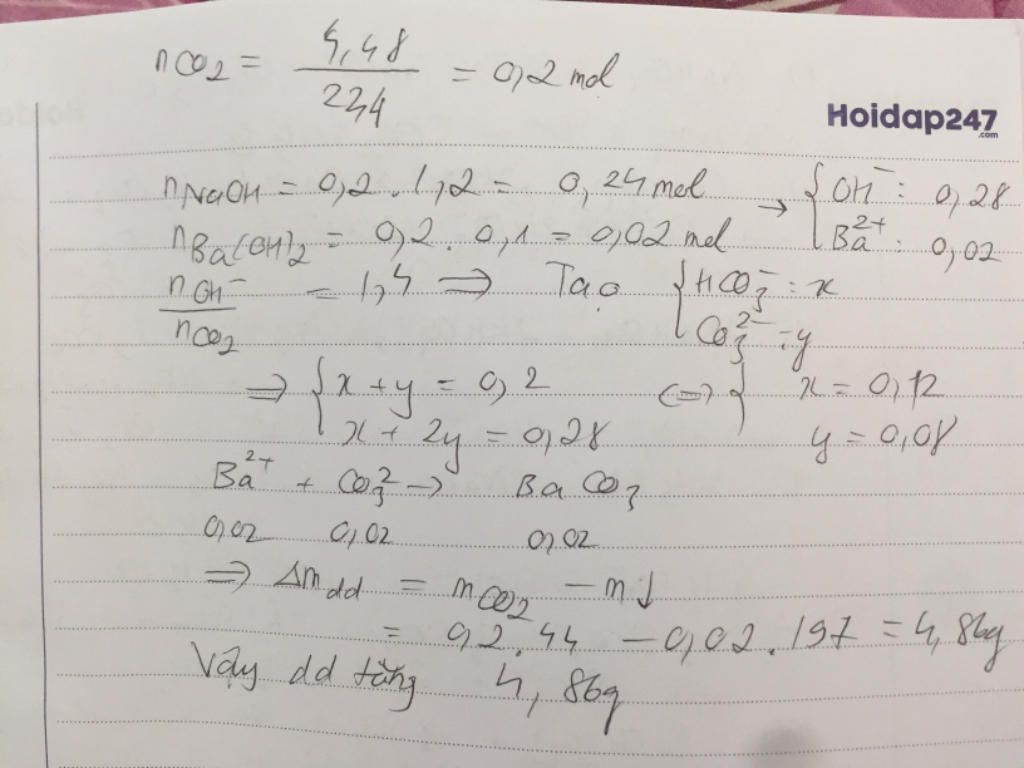 nCO₂ = 4,48 / 22,4 = 0,2 mol
Hoidap247
.com
nNaOH = 0,2 . 1,2 = 0,24 mol → { OH⁻ : 0,28
nBa(OH)₂ = 0,2 . 0,1 = 0,02 mol { Ba²⁺ : 0,02
nOH⁻ / nCO₂ = 1,4 ⇒ Tạo { HCO₃⁻ : x
CO₃²⁻ : y
⇒ { x + y = 0,2 ⇔ { x = 0,12
x + 2y = 0,28 y = 0,08
Ba²⁺ + CO₃²⁻ → BaCO₃
0,02 0,02 0,02
⇒ Δm dd = mCO₂ − m↓
= 0,2 . 44 − 0,02 . 197 = 4,86g
Vậy dd tăng 4,86g